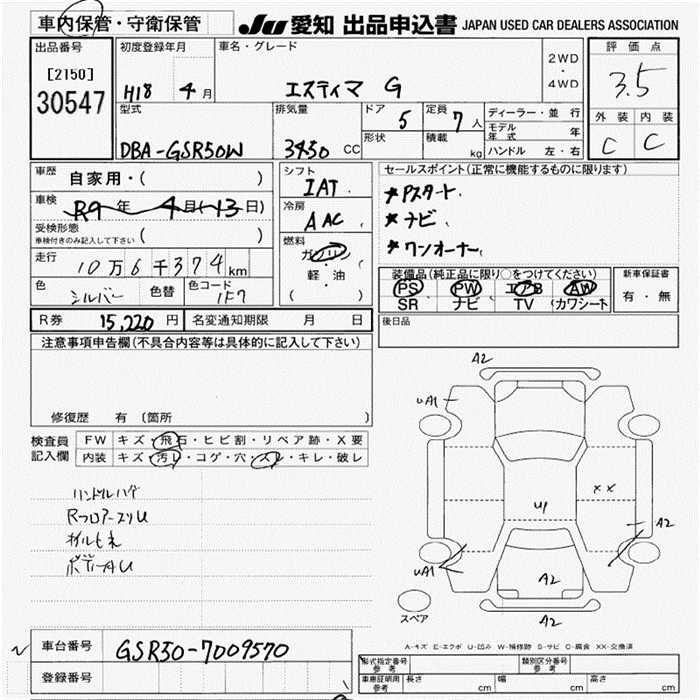 車内保管・守衛保管 JU 愛知 出品申込書 JAPAN USED CAR DEALERS ASSOCIATION
出品番号 初度登録年月 車名・グレード 2WD・4WD 評価点
[2150] 30547 H18 4月 エスティマ G 3.5
型式 排気量 ドア 5 定員 7人 ディーラー・並行 外装 内装
モデル年式 年 C C
DBA-GSR50W 3430 CC 形状 積載 kg ハンドル 左・右
車歴 自家用・( ) シフト IAT セールスポイント(正常に機能するものに限ります)
車検 R9年 4月(13日) 冷房 AAC ★Pスタート、
受検形態 ( ) ★ナビ、
車検付きのみ記入して下さい
燃料 ガソリン ★ワンオーナー、
走行 10万6千374km 軽・油
( ) 装備品(純正品に限り○をつけてください) 新車保証書
色 シルバー 色替 色コード 1F7 PS PW エアB AW 有・無
SR ナビ TV (カワシート
R券 15,220円 名変通知期限 月 日 後日品
注意事項申告欄(不具合内容等は具体的に記入して下さい)
修復歴 有 〔箇所
検査員記入欄 FW キズ・飛石・ヒビ割・リペア跡・X要
内装 キズ・汚レ・コゲ・穴・スレ・キレ・破レ
ハンドルハゲ
RフロアースリU
A2
uA1
U1
××
A2
uA1
A2
スペア
A2
A-キズ E-エクボ U-凹み W-補修跡 S-サビ C-腐食 XX-交換済
車台番号 GSR50-7009570
登録番号
形式指定番号 参考 類別区分番号 参考
車庫証明用 参考 長さ cm 幅 cm 高さ cm